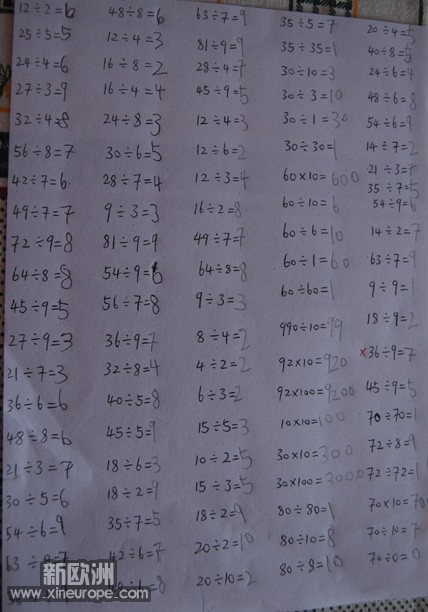 12÷2=6
25÷5=5
24÷4=6
27÷3=9
32÷4=8
56÷8=7
42÷7=6
49÷7=7
72÷9=8
64÷8=8
45÷9=5
27÷9=3
21÷7=3
36÷6=6
48÷8=6
21÷3=7
30÷5=6
54÷6=9
63÷9=7
48÷8=6
12÷4=3
16÷8=2
16÷4=4
24÷8=3
30÷6=5
28÷7=4
9÷3=3
81÷9=9
54÷9=6
56÷7=8
36÷9=7
32÷8=4
40÷5=8
45÷5=9
18÷6=3
18÷2=9
35÷7=5
42÷6=7
63÷7=9
81÷9=9
28÷4=7
45÷9=5
12÷4=3
12÷6=2
12÷3=4
16÷2=8
49÷7=7
64÷8=8
9÷3=3
8÷4=2
4÷2=2
6÷3=2
15÷5=3
10÷2=5
15÷3=5
18÷2=9
20÷2=10
20÷10=2
35÷5=7
35÷35=1
30÷10=3
30÷3=10
30÷1=30
30÷30=1
60×10=600
60÷10=6
60÷6=10
60÷1=60
60÷60=1
990÷10=99
92×10=920
92×100=9200
10×10=100
30×10=300
30×100=3000
80÷80=1
80÷10=8
80÷8=10
20÷4=5
40÷8=5
24÷6=4
48÷6=8
54÷6=9
14÷7=2
21÷3=7
35÷7=5
54÷9=6
14÷2=7
63÷7=9
9÷9=1
18÷9=2
×36÷9=7
45÷9=5
70÷70=1
72÷8=9
72÷72=1
70×10=70
70÷10=7
70÷0=0
新欧洲
www.xineurope.com